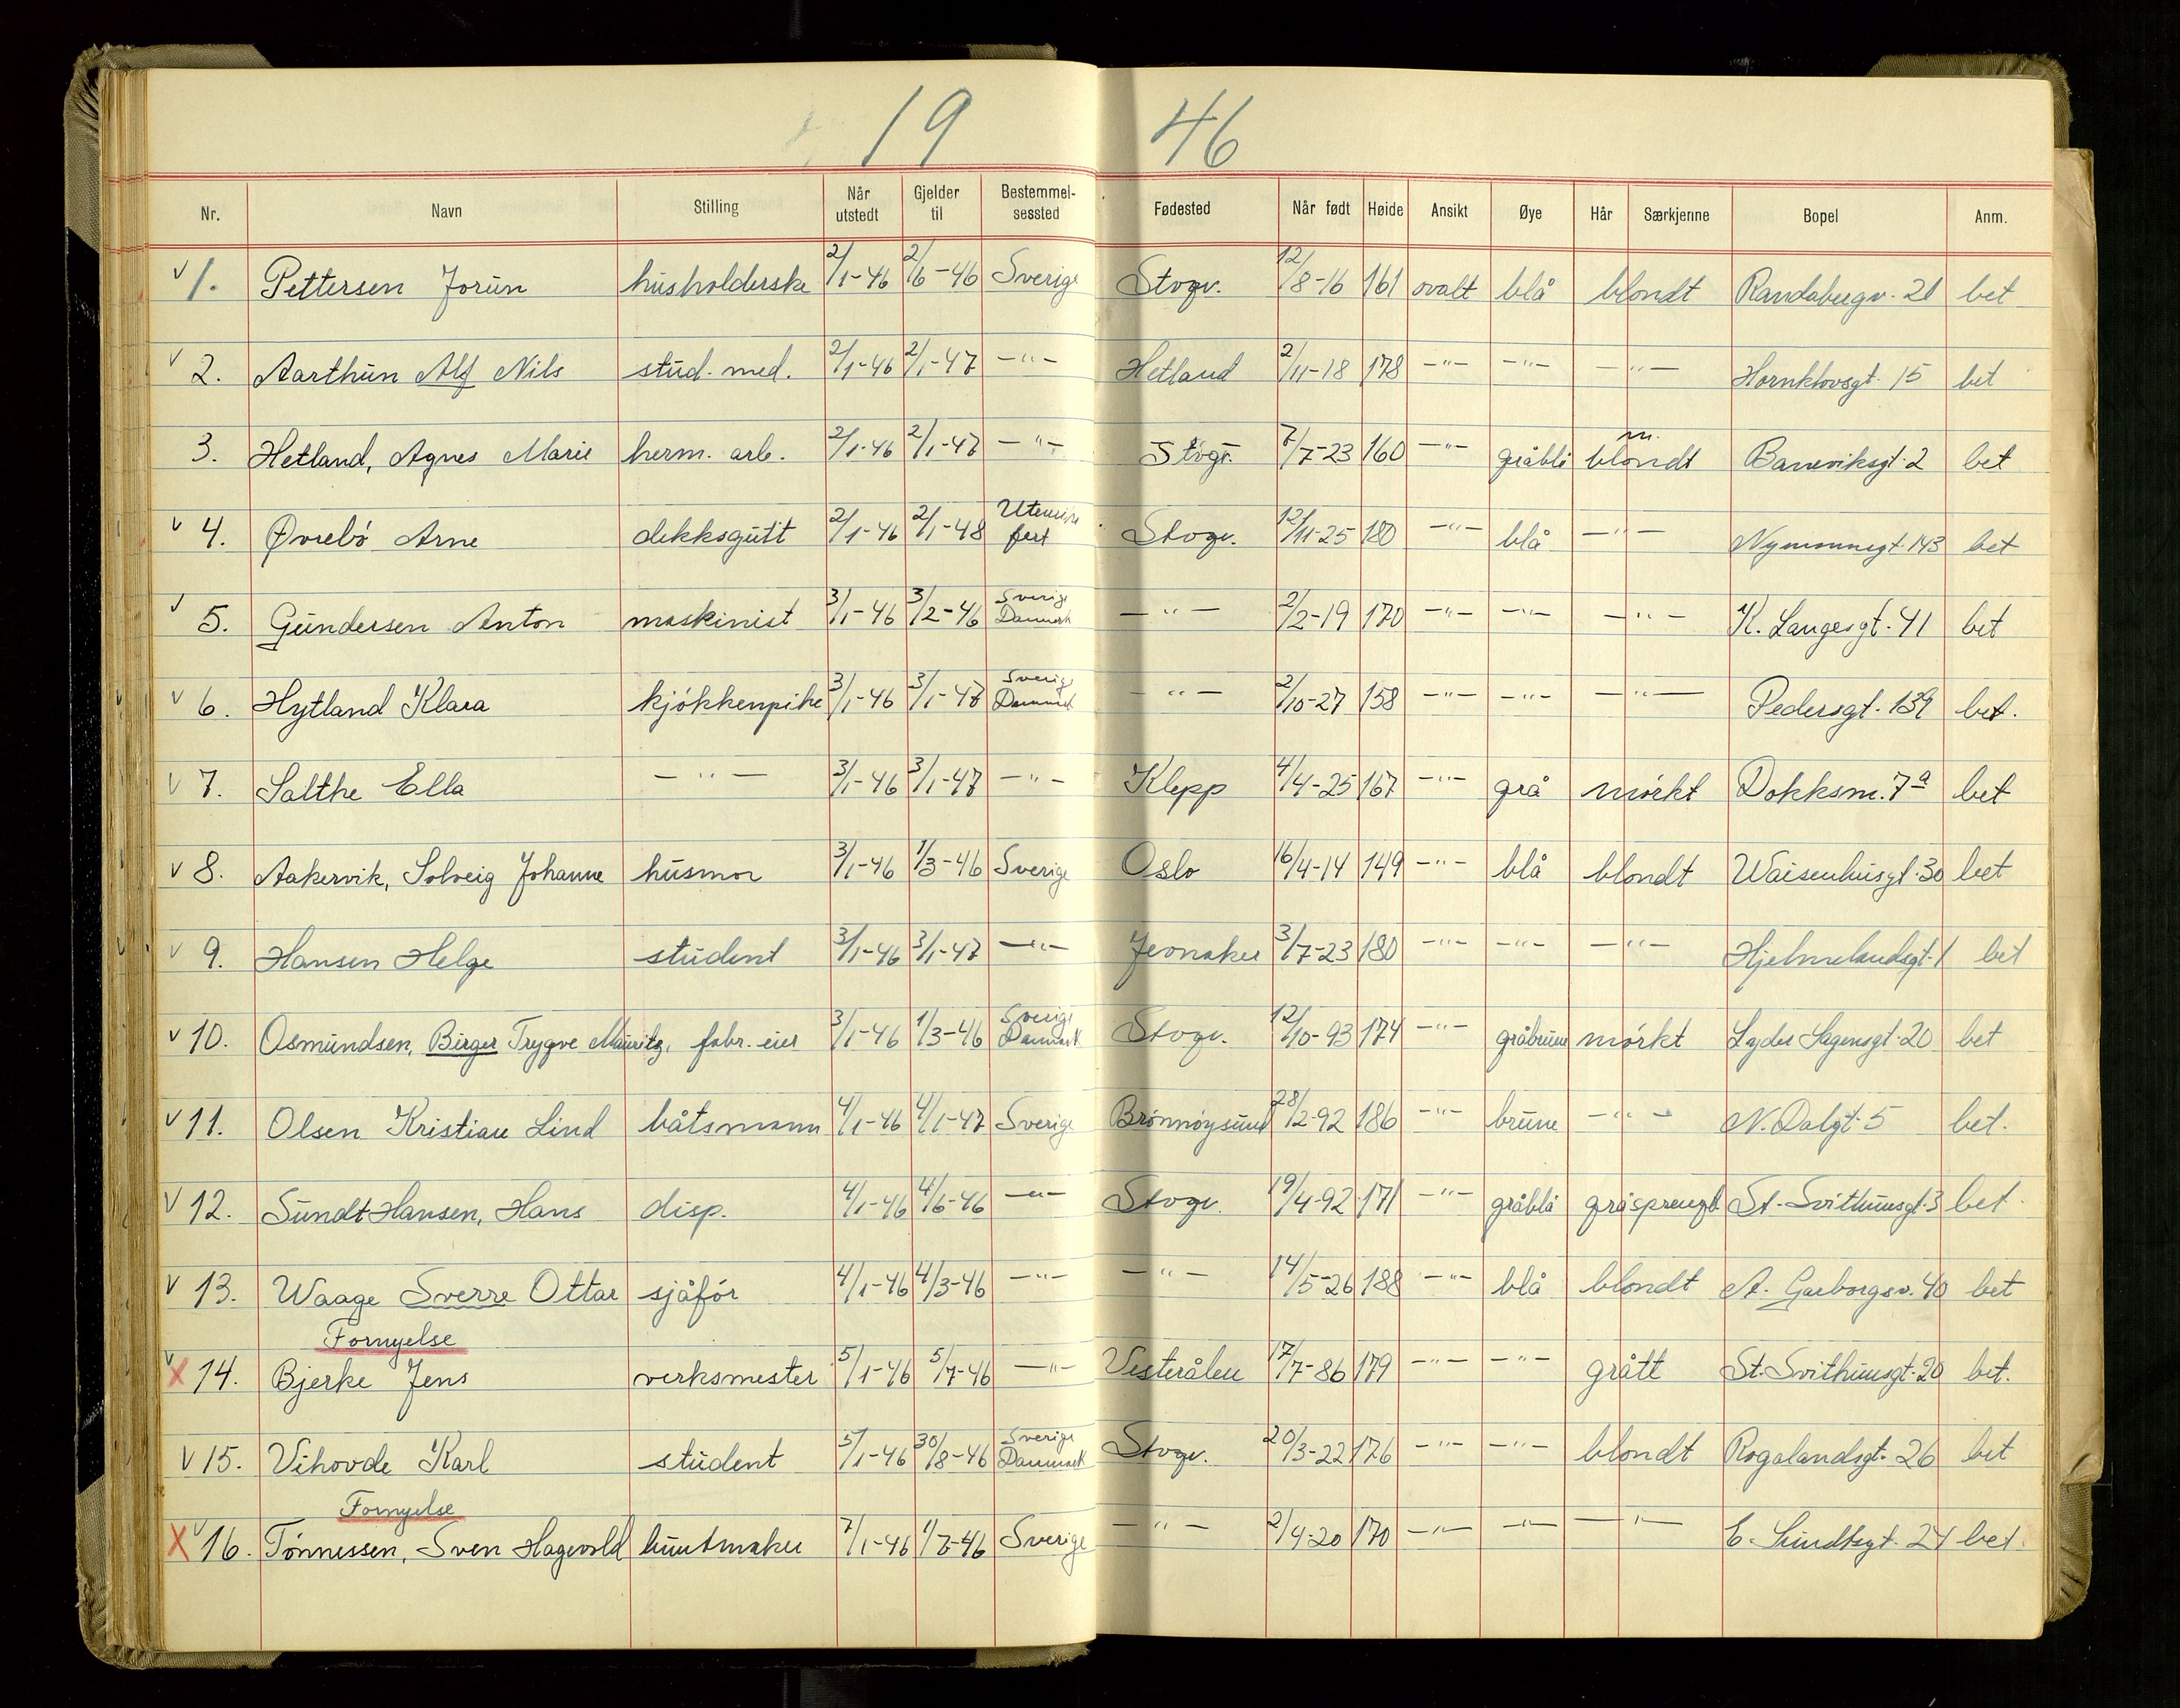 19 46
Nr. Navn Stilling Når utstedt Gjelder til Bestemmelsessted Fødested Når født Høide Ansikt Øye Hår Særkjenne Bopel Anm.
v 1. Pettersen Jorun husholderske 2/1-46 2/6-46 Sverige Stvgr. 12/8-16 161 ovalt blå blondt Randabergv. 21 bet
v 2. Aarthun Alf Nils stud. med. 2/1-46 2/1-47 -"- Hetland 2/11-18 178 -"- -"- -"- Hornklovsgt. 15 bet
3. Hetland, Agnes Marie herm. arb. 2/1-46 2/1-47 -"- Stvgr. 7/7-23 160 -"- gråblå m. blondt Baneviksgt. 2 bet
v 4. Øvrebø Arne dekksgutt 2/1-46 2/1-48 Utenriks fart Stvgr. 12/11-25 180 -"- blå -"- Nymannsgt. 143 bet
v 5. Gundersen Anton maskinist 3/1-46 3/2-46 Sverige Danmark -"- 2/2-19 170 -"- -"- -"- K. Langesgt. 41 bet
v 6. Hytland Klara kjøkkenpike 3/1-46 3/1-48 Sverige Danmark -"- 2/10-27 158 -"- -"- -"- Pedersgt. 139 bet.
v 7. Salthe Ella -"- 3/1-46 3/1-47 -"- Klepp 4/4-25 167 -"- grå mørkt Dokksm. 7a bet
v 8. Aakervik, Solveig Johanne husmor 3/1-46 1/3-46 Sverige Oslo 16/4-14 149 -"- blå blondt Waisenhusgt. 30 bet
v 9. Hansen Helge student 3/1-46 3/1-47 -"- Jevnaker 3/7-23 180 -"- -"- -"- Hjelmelandsgt. 1 bet
v 10. Osmundsen, Birger Trygve Mauritz, fabr. eier 3/1-46 1/3-46 Sverige Danmark Stvgr. 12/10-93 174 -"- gråbrune mørkt Lyder Sagensgt. 20 bet
v 11. Olsen Kristian Lind båtsmann 4/1-46 4/1-47 Sverige Brønnøysund 28/2-92 186 -"- brune -"- N. Dalgt. 5 bet.
v 12. Sundt Hansen, Hans disp. 4/1-46 4/6-46 -"- Stvgr. 19/4-92 171 -"- gråblå gråsprengt St. Svithunsgt. 3 bet
v 13. Waage Sverre Ottar sjåfør 4/1-46 4/3-46 -"- -"- 14/5-26 188 -"- blå blondt A. Garborgsv. 40 bet
Fornyelse
v X 14. Bjerke Jens verksmester 5/1-46 5/7-46 -"- Vesterålen 17/7-86 179 -"- -"- grått St. Svithunsgt. 20 bet.
v 15. Vihovde Karl student 5/1-46 30/8-46 Sverige Danmark Stvgr. 20/3-22 176 -"- -"- blondt Rogalandsgt. 26 bet
Fornyelse
X v 16. Tønnessen, Sven Hagevold buntmaker 7/1-46 1/7-46 Sverige -"- 2/4-20 170 -"- -"- -"- E. Sundtsgt. 24 bet.